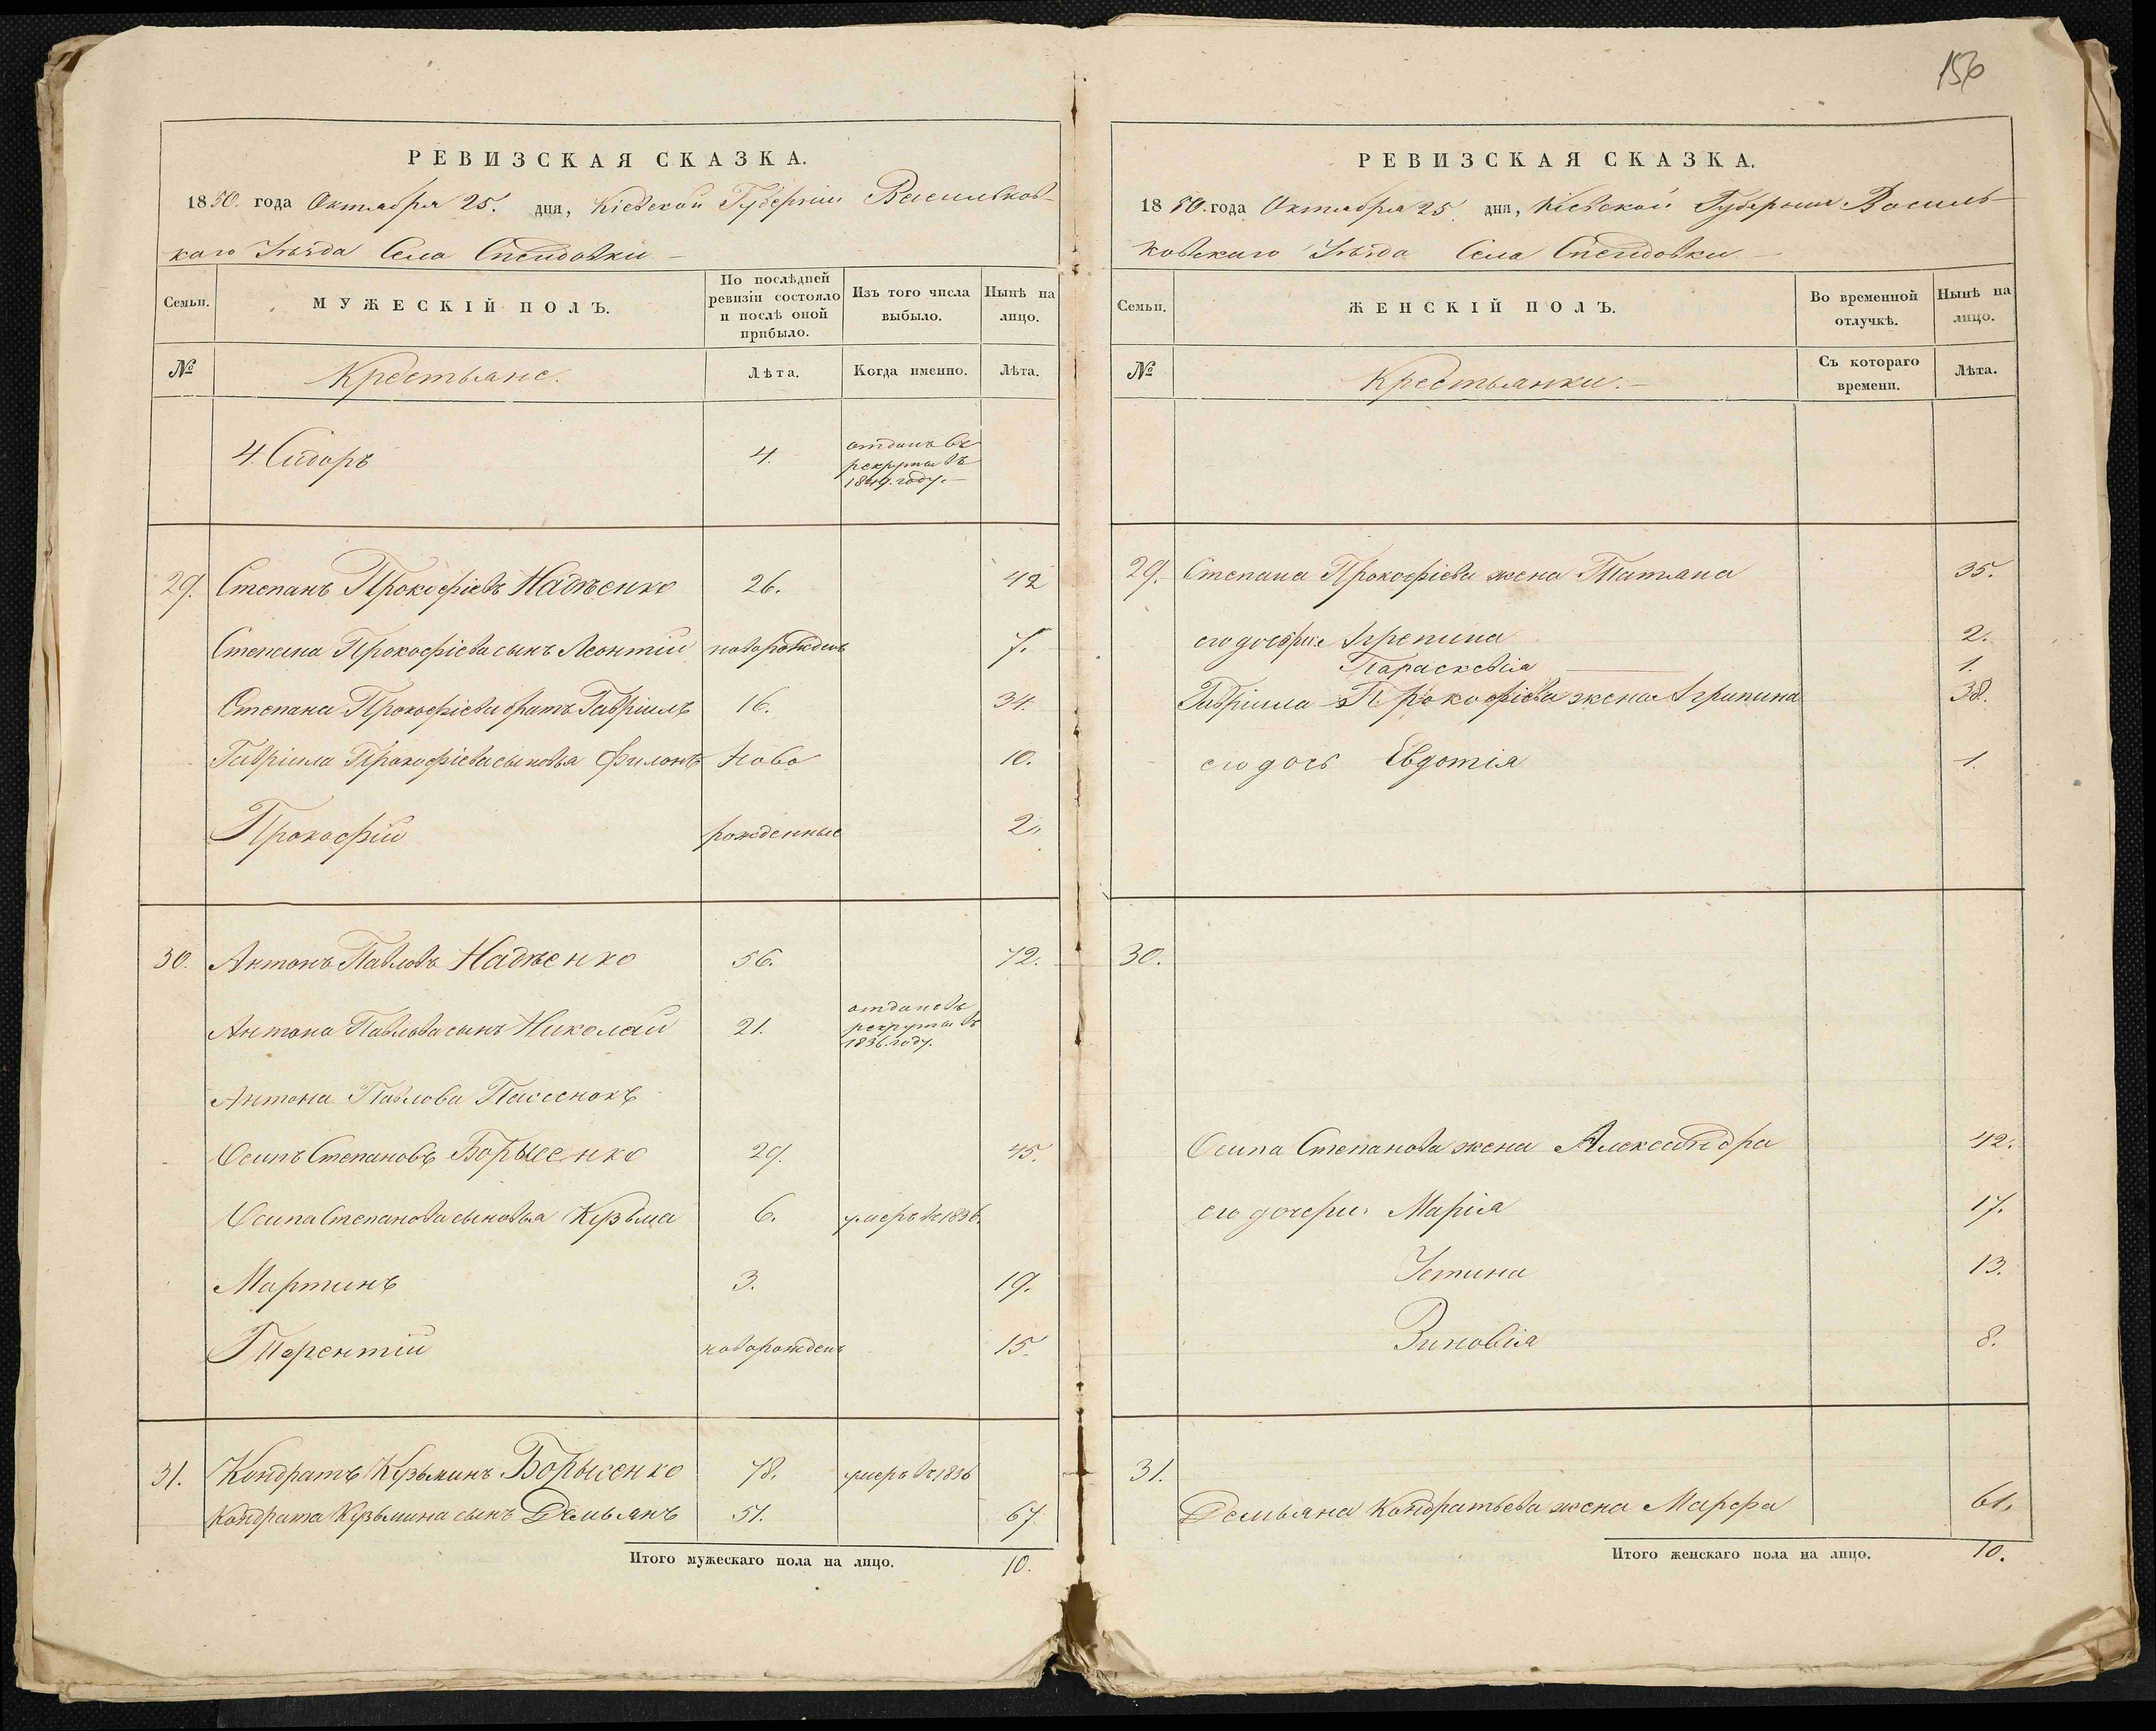 156
РЕВИЗСКАЯ СКАЗКА.
1850. года Октября 25. дня, Кіевской Губерніи Васильков-
каго Уѣзда Села Спендовки
Семьи.
МУЖЕСКІЙ ПОЛЪ.
По послѣдней ревизіи состояло и послѣ оной прибыло.
Изъ того числа выбыло.
Нынѣ на лицо.
№
Крестьяне.
Лѣта.
Когда именно.
Лѣта.
4. Сидоръ 4. отданъ въ
рекруты въ
1849. году.
29. Степанъ Прокофіевъ Надѣенко 26. 42
Степана Прокофіева сынъ Леонтій новорожденъ 7.
Степана Прокофіева братъ Гавріилъ 16. 34.
Гавріила Прокофіева сыновья Филонъ Ново 10.
Прокофій рожденные 2.
30. Антонъ Павловъ Надѣенко 56. 72.
Антона Павлова сынъ Николай 21. отданъ въ
рекруты въ
1836. году.
Антона Павлова Пасенокъ
Осипъ Степановъ Борысенко 29. 45.
Осипа Степанова сыновья Кузьма 6. умеръ въ 1836.
Мартинъ 3. 19.
Терентій новорожденъ 15.
31. Кондратъ Кузьминъ Борысенко 78. умеръ въ 1836
Кондрата Кузьмина сынъ Демьянъ 51. 67
Итого мужескаго пола на лицо. 10.
РЕВИЗСКАЯ СКАЗКА.
1850. года Октября 25. дня, Кіевской Губерніи Василь-
ковскаго Уѣзда Села Спендовки
Семьи.
ЖЕНСКІЙ ПОЛЪ.
Во временной отлучкѣ.
Нынѣ на лицо.
№
Крестьянки.
Съ котораго времени.
Лѣта.
29. Степана Прокофіева жена Татьяна 35.
его дочери: Агрепина 2.
Параскевія 1.
Гавріила Прокофіева жена Агрипина 38.
его дочь Евдотія 1.
30.
Осипа Степанова жена Александра 42.
его дочери: Марія 17.
Устина 13.
Зиновія 8.
31.
Демьяна Кондратьева жена Марфа 61.
Итого женскаго пола на лицо. 10.